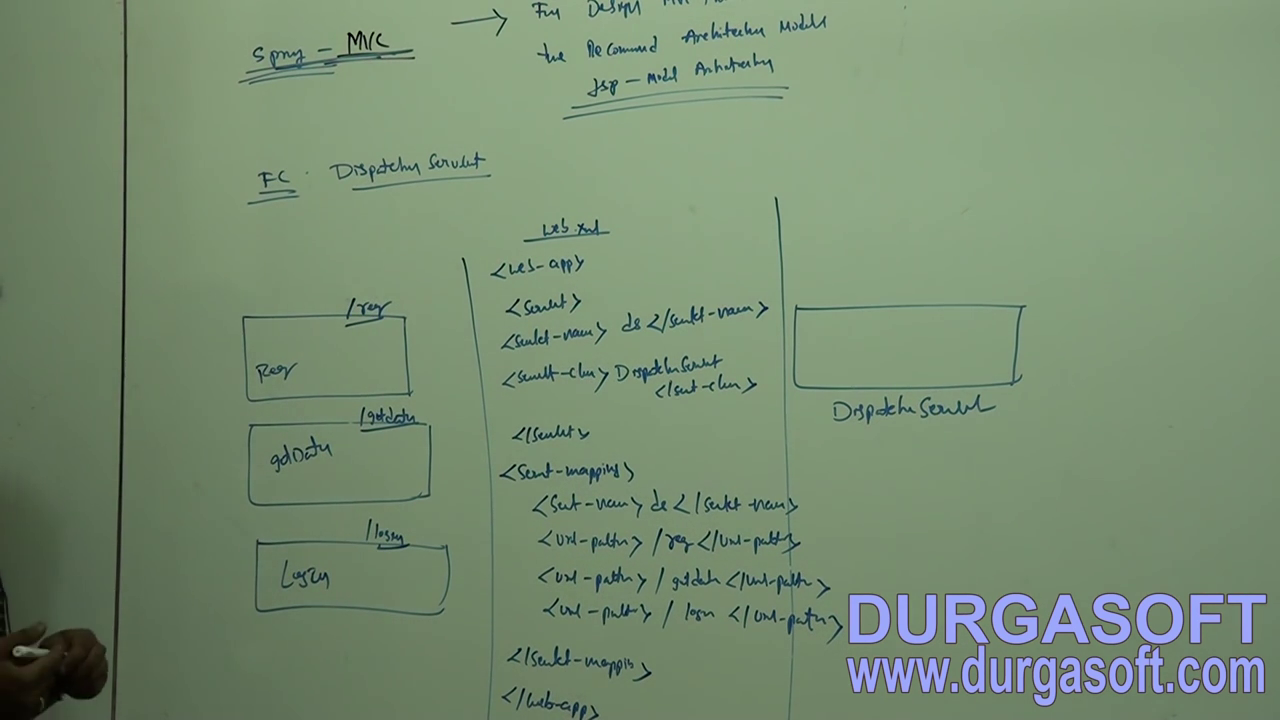 For Design MVC
Spring – MVC
the Recommend Architecture Models
Jsp – Model Architecture
FC. Dispatcher Servlet
web.xml
<web-app>
<servlet>
<servlet-name> ds </servlet-name>
<servlet-class> DispatcherServlet
</servlet-class>
</servlet>
<servlet-mapping>
<servlet-name> ds </servlet-name>
<url-pattern> /reg </url-pattern>
<url-pattern> / getdata </url-pattern>
<url-pattern> / login </url-pattern>
</servlet-mapping>
</web-app>
/reg
Reg
/getdata
getData
/login
Login
DispatcherServlet
DURGASOFT
www.durgasoft.com